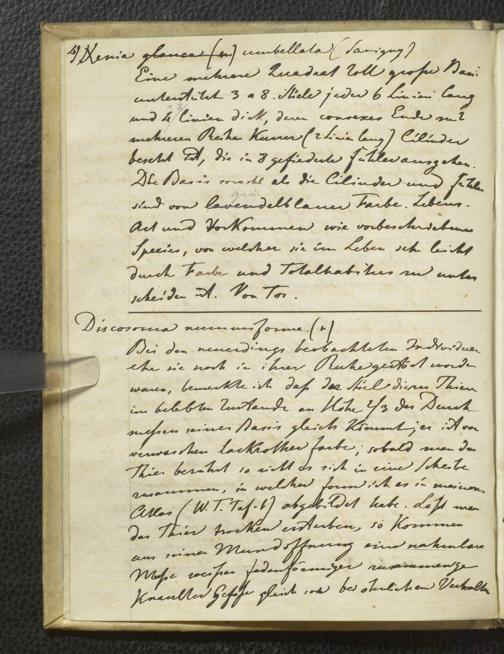 4) Xenia glauca (n) umbellata (Savigny)
Eine mehrere Quadrat Zoll große Basis
unterstützt 3 a 8. Stiele jeder 6 Linien lang
und 4 Linien dick, deren convexes Ende mit
mehreren Reihe kurzer (2 Linien lang) Cilinder
besetzt ist, die in 8 gefiederte Fühler ausgehen.
Die Basis sowohl als die Cilinder und Fühler
sind von lavendelblauer Farbe. Lebens-
Art und Vorkommen wie vorbeschriebene
Species, von welcher sie im Leben sehr leicht
durch Farbe und Totalhabitus zu unter
scheiden ist. Von Tor.
Discosoma nummiforme. (n)
Bei den neuerdings beobachteten Individuen
ehe sie noch in ihrer Ruhe gestört worden
waren, bemerkte ich daß der Stiel dieses Thieres
im belebten Zustande an Höhe 2/3 des Durch
messers seines Basis gleich kommt; es ist von
verwaschen lackrother Farbe; sobald man das
Thier berührt so zieht es sich in eine Scheibe
zusammen, in welcher Form ich es in meinem
Atlas (W. T. Taf. 6) abgebildet habe. Läßt man
das Thier trocken ersterben, so kommen
aus seiner Mundöffnung eine
Masse weißer fadenförmiger zusammenge
knaulter Gefäße gleich bei ähnlichen